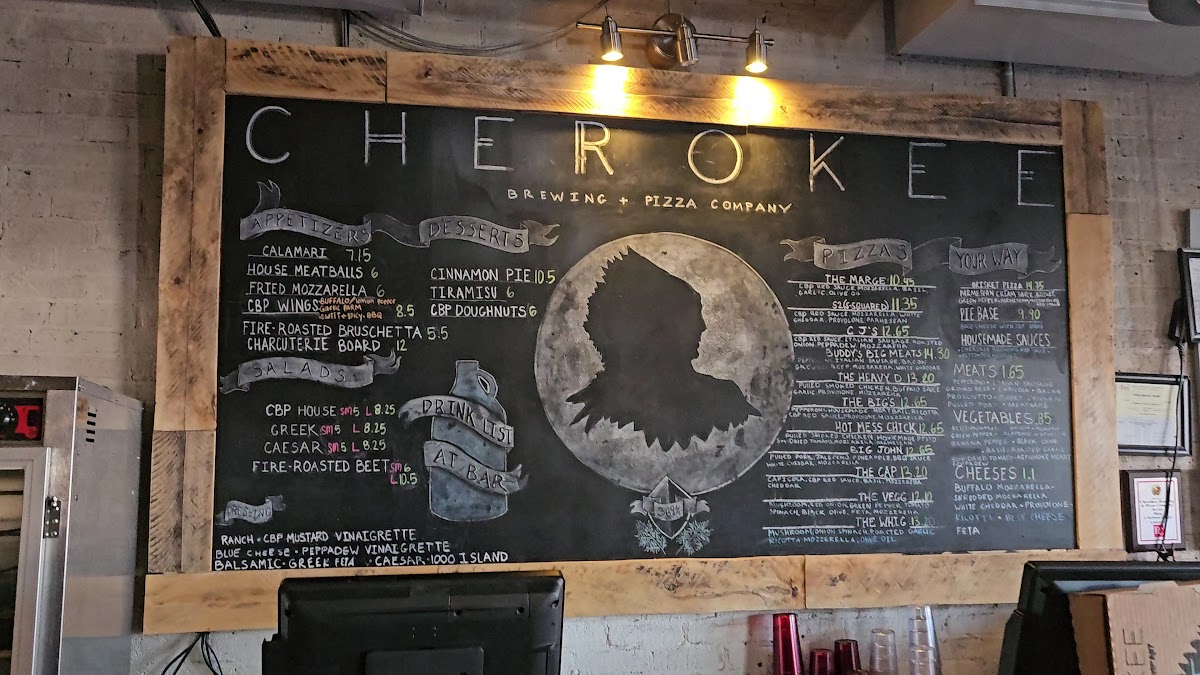 CHEROKEE
BREWING + PIZZA COMPANY
APPETIZERS
CALAMARI 7.15
HOUSE MEATBALLS 6
FRIED MOZZARELLA 6
CBP WINGS BUFFALO/LEMON PEPPER 8.5
GARLIC PARM
SWEET + SPICY, BBQ
FIRE-ROASTED BRUSCHETTA 5.5
CHARCUTERIE BOARD 12
SALADS
CBP HOUSE SM 5 L 8.25
GREEK SM 5 L 8.25
CAESAR SM 5 L 8.25
FIRE-ROASTED BEET SM 6
L 10.5
DRESSING
RANCH • CBP MUSTARD VINAIGRETTE
BLUE CHEESE • PEPPADEW VINAIGRETTE
BALSAMIC • GREEK FETA • CAESAR • 1000 ISLAND
DESSERTS
CINNAMON PIE 10.5
TIRAMISU 6
CBP DOUGHNUTS 6
DRINK LIST
AT BAR
PIZZAS
THE MARGE 10.45
CBP RED SAUCE, MOZZARELLA, BASIL
GARLIC, OLIVE OIL
526 SQUARED 11.35
CBP RED SAUCE, MOZZARELLA, WHITE
CHEDDAR, PROVOLONE, PARMESEAN
C J'S 12.65
CBP RED SAUCE, ITALIAN SAUSAGE, ROASTED
ONION, PEPPADEW, MOZZARELLA
BUDDY'S BIG MEATS 14.30
ITALIAN SAUSAGE, BACON
BEEF, MOZZARELLA, WHITE CHEDDAR
THE HEAVY D 13.20
PULLED SMOKED CHICKEN, BUFFALO SAUCE
GARLIC, PROVOLONE, MOZZARELLA
THE BIG'S 12.65
PEPPERONI, HOUSEMADE MEATBALL, RICOTTA
CBP RED SAUCE, PROVOLONE, MOZZARELLA
HOT MESS CHICK 12.65
PULLED SMOKED CHICKEN, HOMEMADE PESTO
SUN-DRIED TOMATO, MOZZARELLA
BIG JOHN 12.65
PULLED PORK, JALEPENO, PINEAPPLE, BBQ SAUCE
WHITE CHEDDAR, MOZZARELLA
THE CAP 13.20
CAPICOLA, CBP RED SAUCE, BASIL, MOZZARELLA
CHEDDAR
THE VEGG 12.10
MUSHROOM, RED ONION, GREEN PEPPER, TOMATO
SPINACH, BLACK OLIVE, FETA, MOZZARELLA
THE WHIG 13.20
MUSHROOM, ONION, SPINACH, ROASTED GARLIC
RICOTTA, MOZZARELLA, OLIVE OIL
YOUR WAY
BRISKET PIZZA 14.75
PARMESEAN CREAM SAUCE
GREEN PEPPER
PIE BASE 9.90
HOUSEMADE SAUCES
MEATS 1.65
PEPPERONI • ITALIAN SAUSAGE
GROUND BEEF • CAPICOLA • BACON
PROSCIUTTO • PULLED CHICKEN
PULLED PORK • MEATBALLS
VEGETABLES .85
GREEN PEPPER
BANANA PEPPER • BLACK OLIVE
BASIL • ROASTED GARLIC
SUN-DRIED TOMATO • ARTICHOKE HEART
PEPPADEW
CHEESES 1.1
BUFFALO MOZZARELLA •
SHREDDED MOZZARELLA
WHITE CHEDDAR • PROVOLONE •
RICOTTA • BLUE CHEESE
FETA